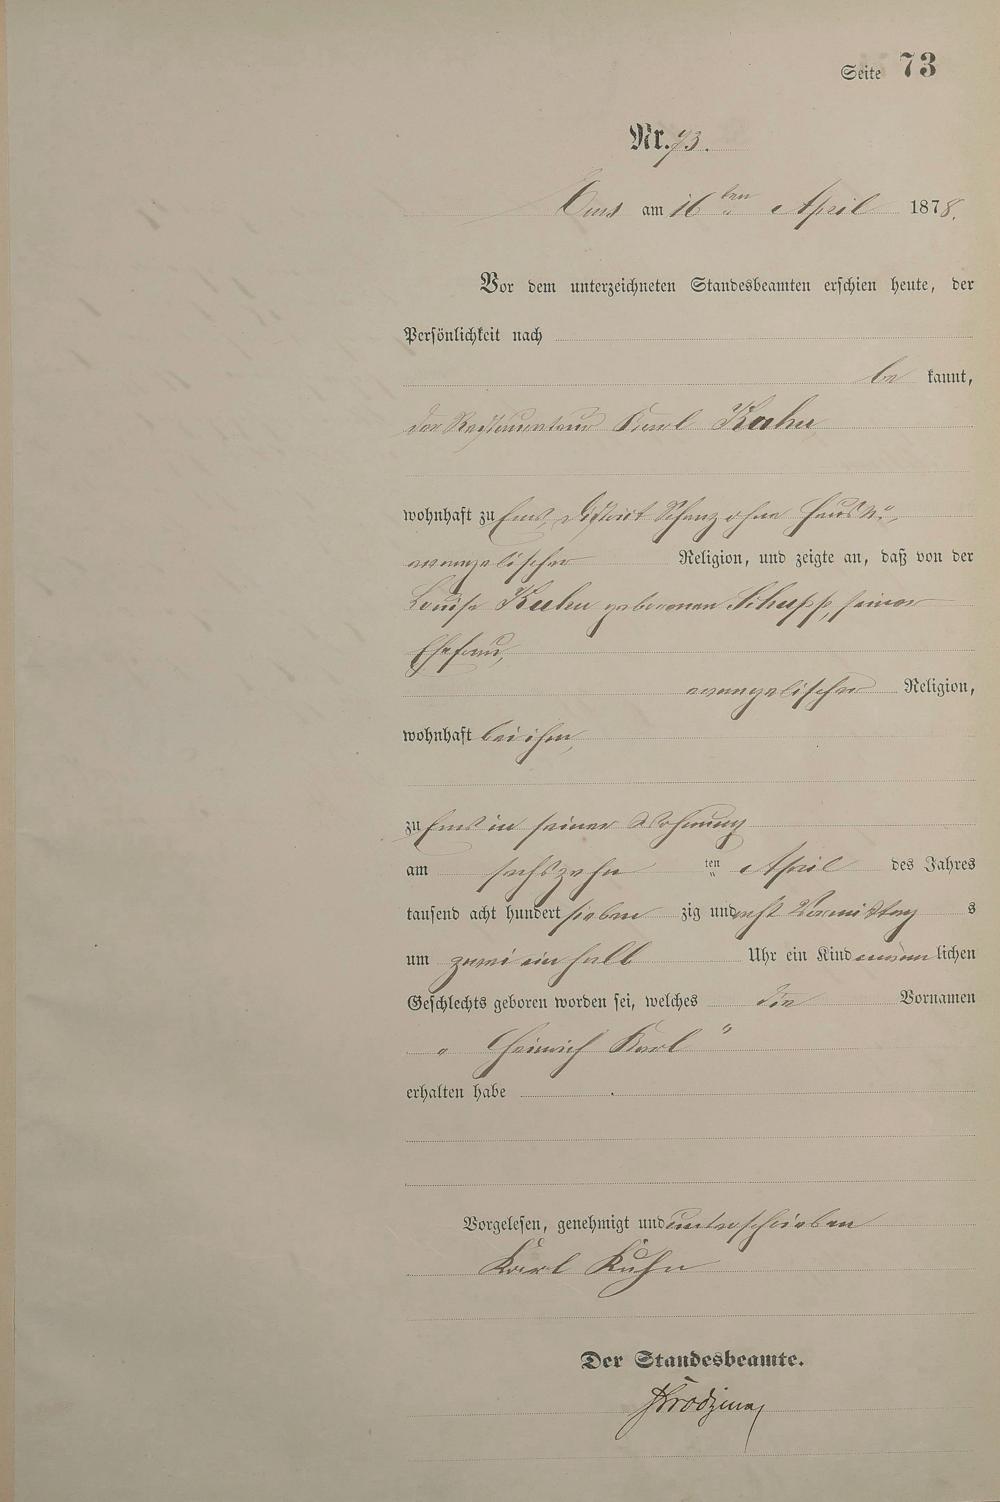 Seite 73
Nr. 73.
Ems am 16 ten April 1878.
Vor dem unterzeichneten Standesbeamten erschien heute, der
Persönlichkeit nach
be kannt,
der Restaurateur Karl Kuhn
wohnhaft zu Ems, District Schanz ohne Haus No,
evangelischer Religion, und zeigte an, daß von der
Louise Kuhn geborenen Schupp, seiner
Ehefrau,
evangelischer Religion,
wohnhaft bei ihm,
zu Ems in seiner Wohnung
am sechszehn ten April des Jahres
tausend acht hundert sieben zig und acht Vormittag s
um zwei ein halb Uhr ein Kind männ lichen
Geschlechts geboren worden sei, welches die Vornamen
" Heinrich Karl "
erhalten habe .
Vorgelesen, genehmigt und unterschrieben
Karl Kuhn
Der Standesbeamte.